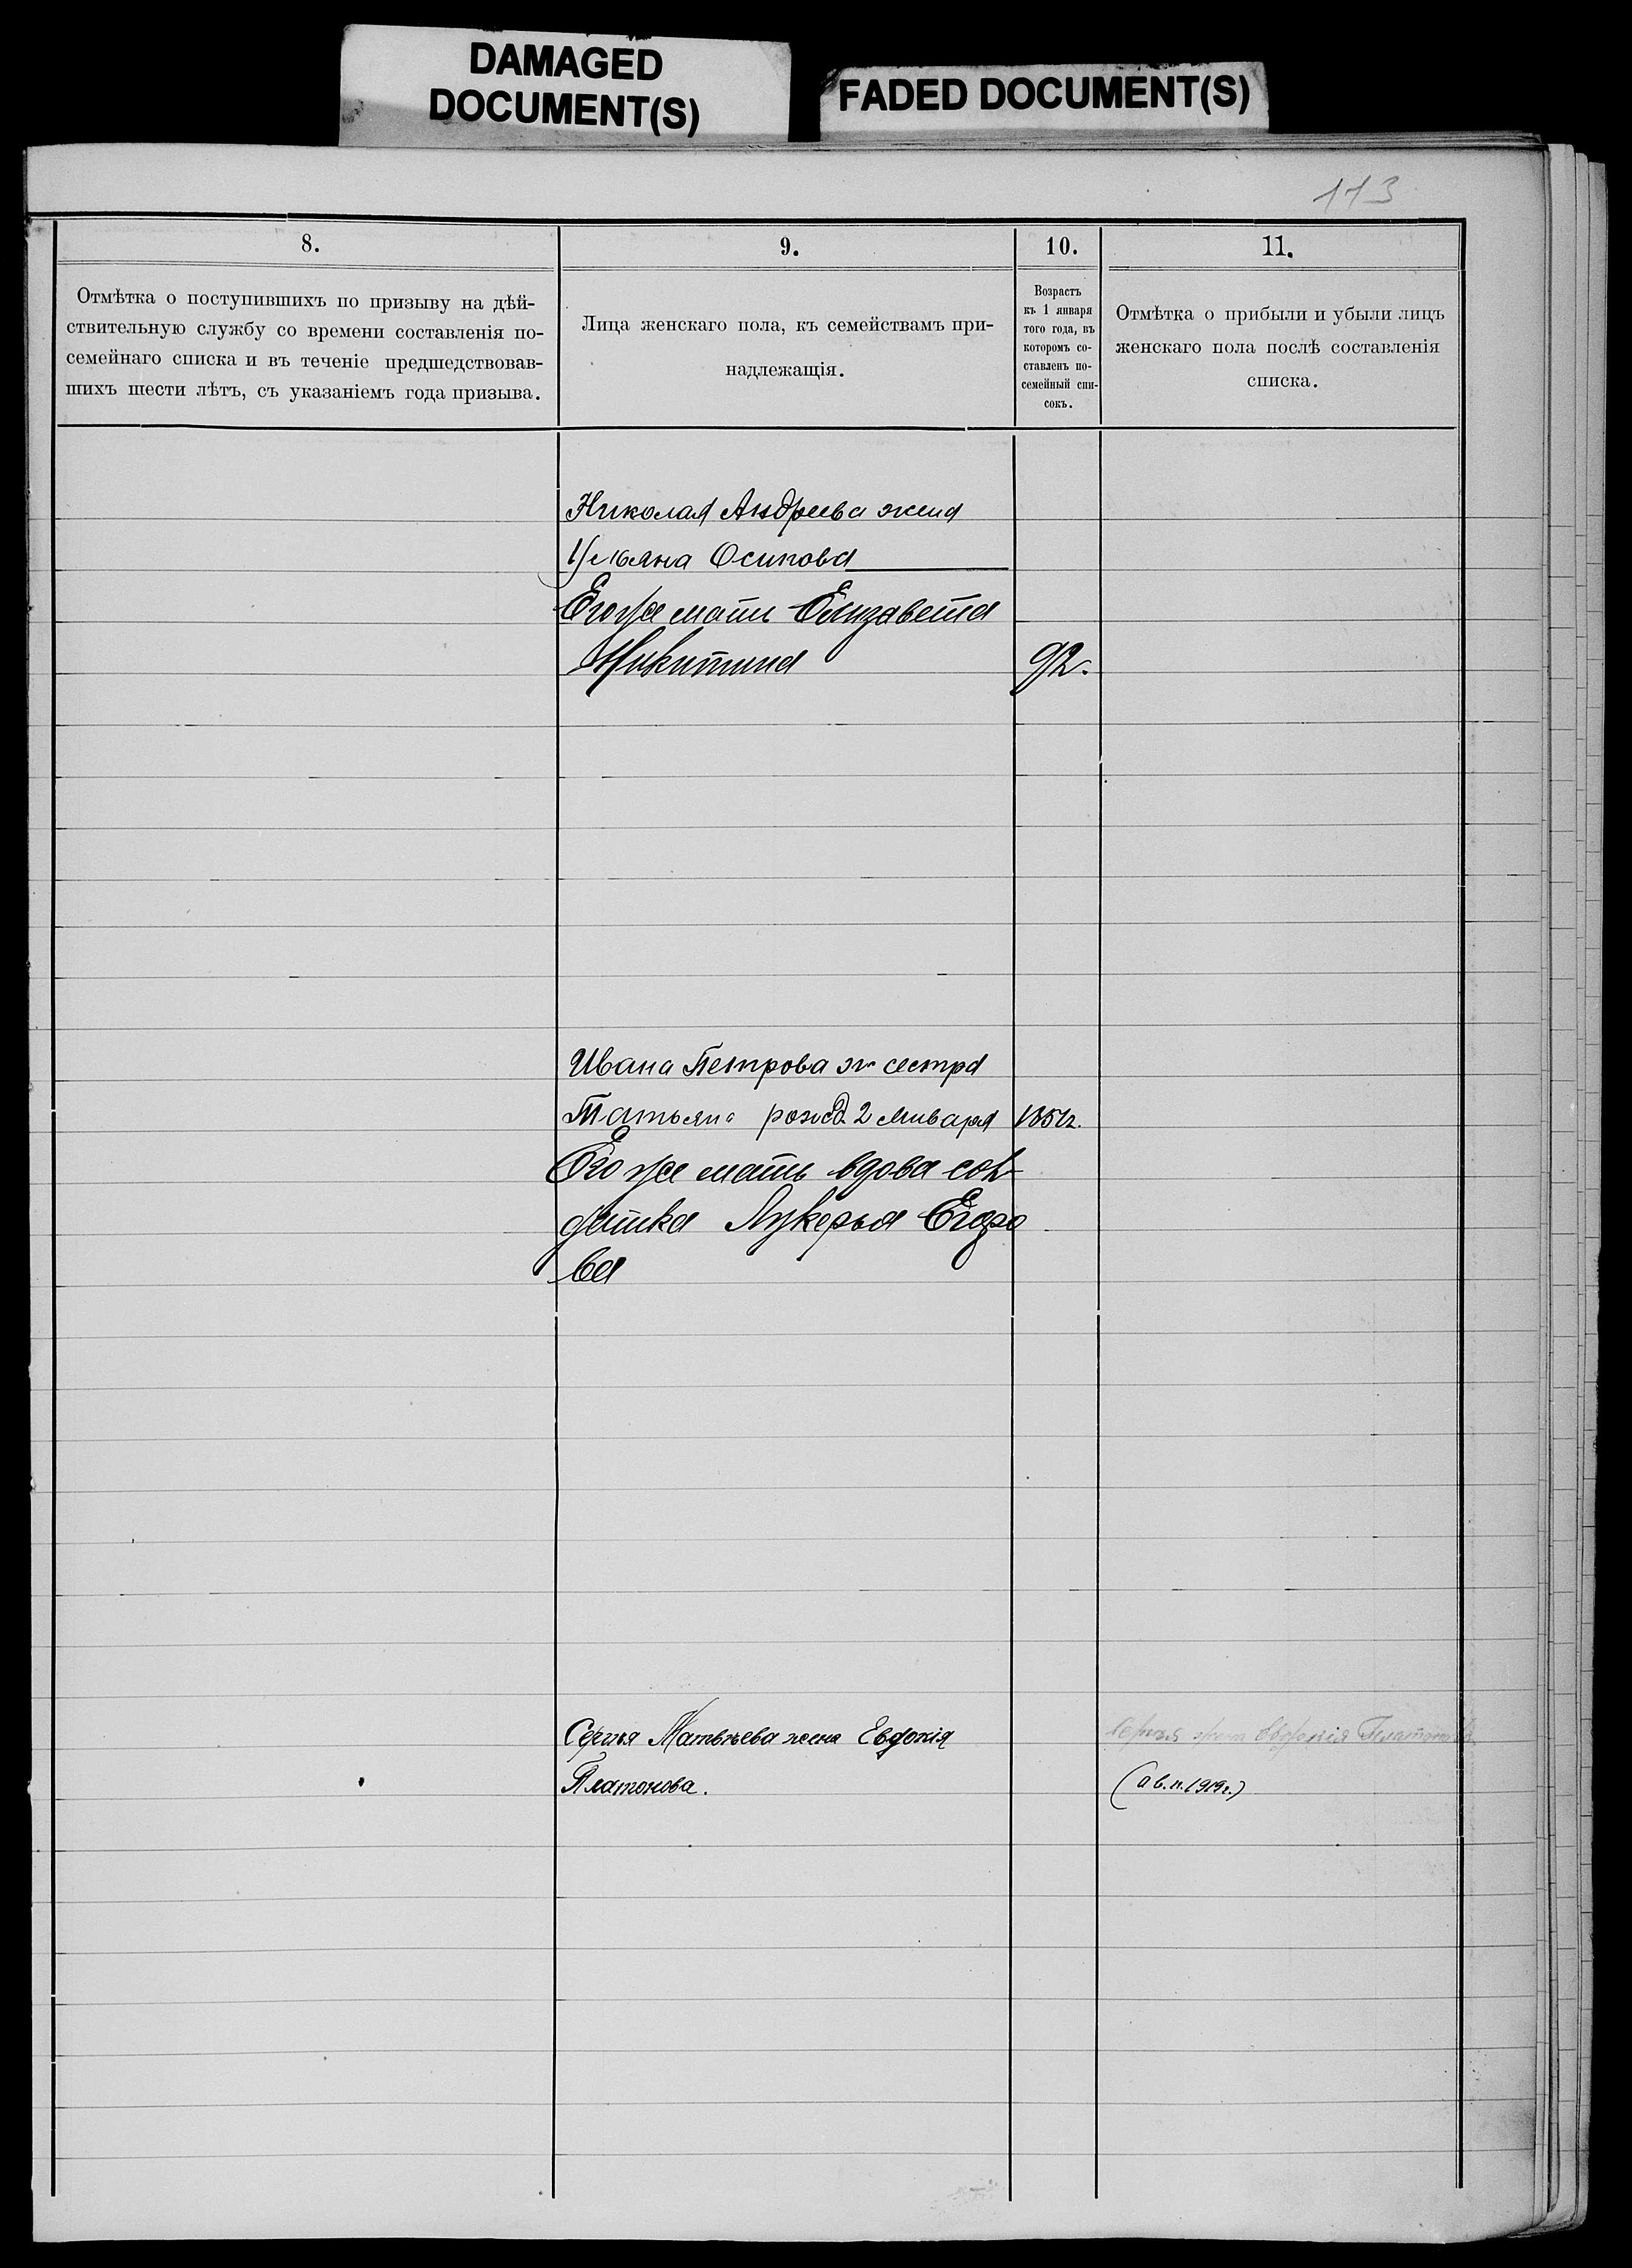 DAMAGED
DOCUMENT(S)
FADED DOCUMENT(S)
113
8.
9.
10.
11.
Отмѣтка о поступившихъ по призыву на дѣй-
ствительную службу со времени составленія по-
семейнаго списка и въ теченіе предшедствовав-
шихъ шести лѣтъ, съ указаніемъ года призыва.
Лица женскаго пола, къ семействамъ при-
надлежащія.
Возрастъ
къ 1 января
того года, въ
которомъ со-
ставленъ по-
семейный спи-
сокъ.
Отмѣтка о прибыли и убыли лицъ
женскаго пола послѣ составленія
списка.
Николая Андреева жена
Ульяна Осипова
Его же мать Елизавета
Никитина
92.
Ивана Петрова сестра
Татьяна рожд. 2 Января
Его же мать вдова сол-
датка Лукерья Егоро
ва
Сергѣя Матвѣева жена Евдокія
Платонова.
Сергѣя жена Евдокія Платонова
(а в. п. 1919 г.)